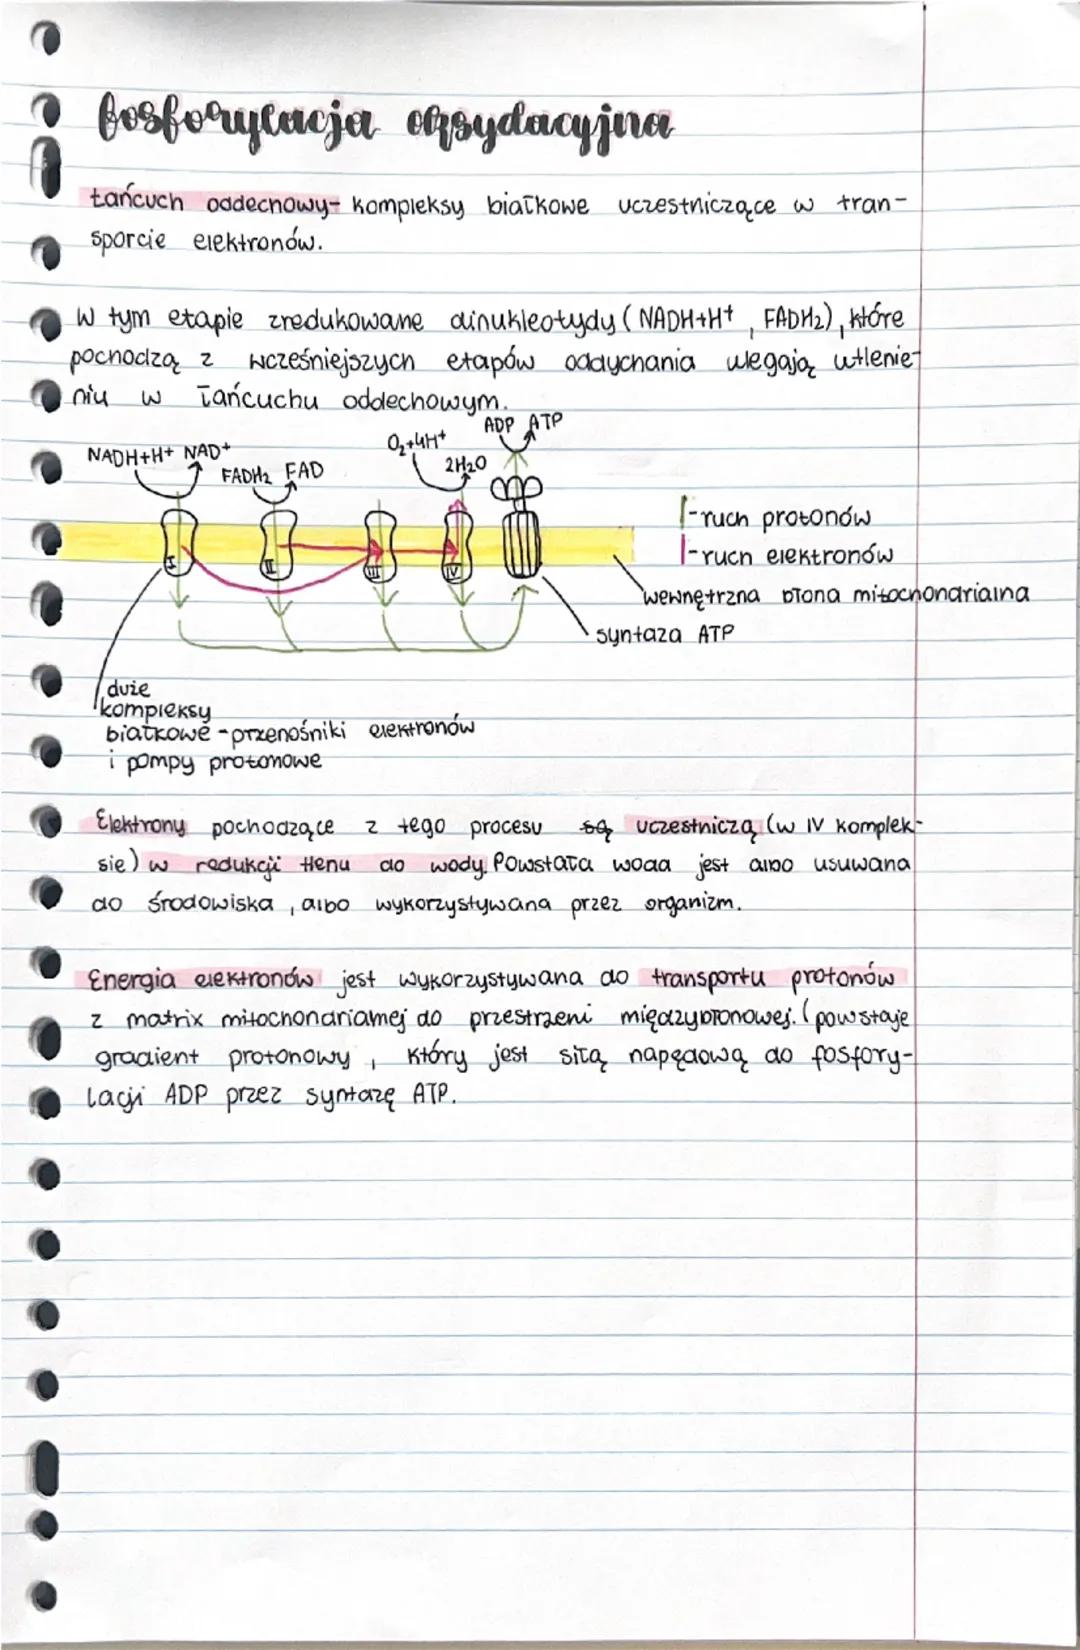 fosforylacja oksydacyjna
łańcuch oddechowy- kompleksy białkowe uczestniczące w tran-
sporcie elektronów.
W tym etapie zredukowane dinukleotydy (NADH+H⁺, FADH₂), które
pochodzą z wcześniejszych etapów oddychania ulegają utlenie-
niu w łańcuchu oddechowym.
NADH+H⁺ NAD⁺
FADH₂ FAD
O₂+4H⁺
2H₂O
ADP ATP
I
II
III
IV
-ruch protonów
-ruch elektronów
wewnętrzna błona mitochondrialna
syntaza ATP
duże
kompleksy
białkowe -przenośniki elektronów
i pompy protonowe
Elektrony pochodzące z tego procesu są uczestniczą (w IV komplek-
sie) w redukcji tlenu do wody. Powstała woda jest albo usuwana
do środowiska, albo wykorzystywana przez organizm.
Energia elektronów jest wykorzystywana do transportu protonów
z matrix mitochondrialnej do przestrzeni międzybłonowej. (powstaje
gradient protonowy, który jest siłą napędową do fosfory-
lacji ADP przez syntazę ATP.